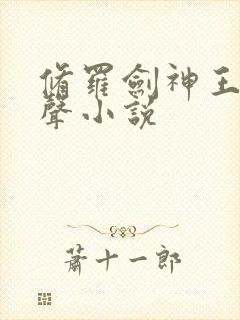 脩羅劍神王
聲小說
蕭十一郎